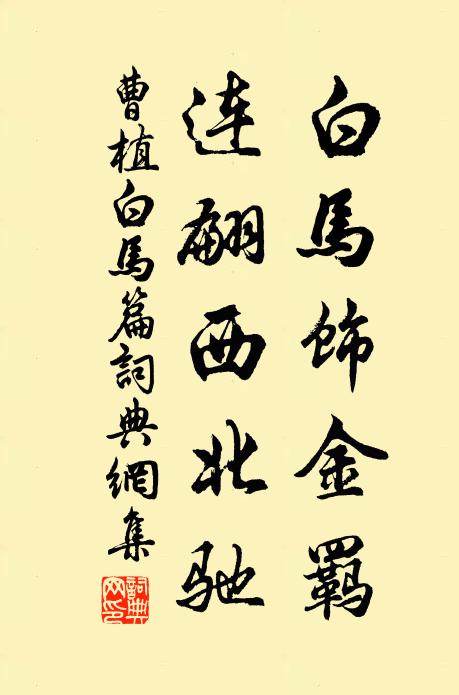 白馬飾金羈
連翩西北馳
曹植白馬篇詞典網集
詞典網印